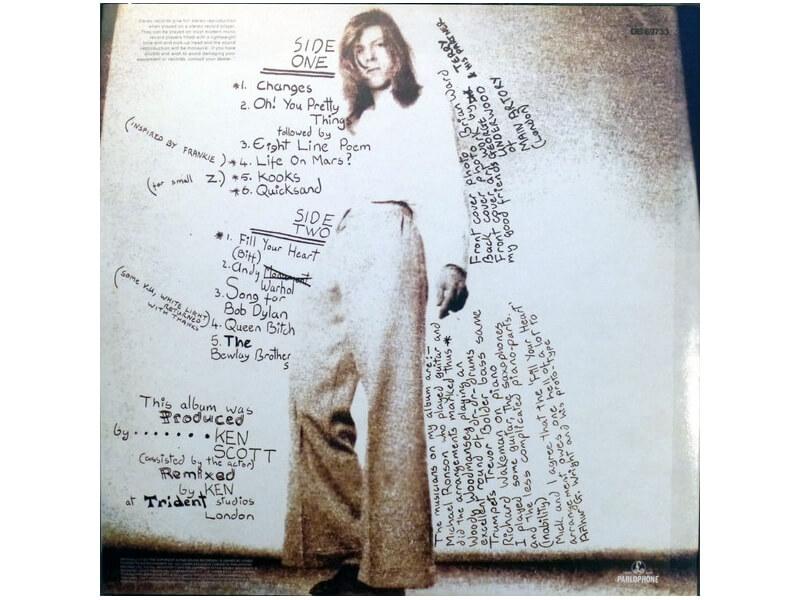 Stereo records give full stereo reproduction
when played on a stereo record player.
They can be played on most modern mono
record players fitted with a lightweight
tone arm and pick-up head and the sound
reproduction will be monaural. If you have
doubts and wish to avoid damaging your
equipment or records, contact your dealer.
DB 69733
SIDE
ONE
*1. Changes
2. Oh! You Pretty
Things
followed by
3. Eight Line Poem
(INSPIRED BY FRANKIE) *4. Life On Mars?
(for small Z.) *5. Kooks
*6. Quicksand
SIDE
TWO
*1. Fill Your Heart
(Biff)
2. Andy
Warhol
3. Song for
Bob Dylan
(some V.U, WHITE LIGHT
RETURNED
WITH THANKS)
4. Queen Bitch
5. The
Bewlay Brother
s
This album was
Produced
by.......KEN
SCOTT
(assisted by the actor)
Remixed
by KEN
at Trident studios
London
Front cover photo by Brian Ward
Back cover photo
Front cover art work by TERRY & HIS PARTNER
and GEORGE UNDERWOOD
my good friends
at MAIN ARTERY
(London)
The musicians on my album are:-
Michael Ronson who played guitar and
did the arrangements marked thus *
Woody Woodmansey playing an
excellent round of dr-dr-drums
Trumpets Trevor Bolder bass same
Richard Wakeman on piano
I played some guitar, the saxophones
and the less complicated piano-parts.
(inability)
Mick and I agree that the 'Fill Your Heart'
arrangement owes one hell of a lot to
Arthur G. Wright and his proto-type
PARLOPHONE